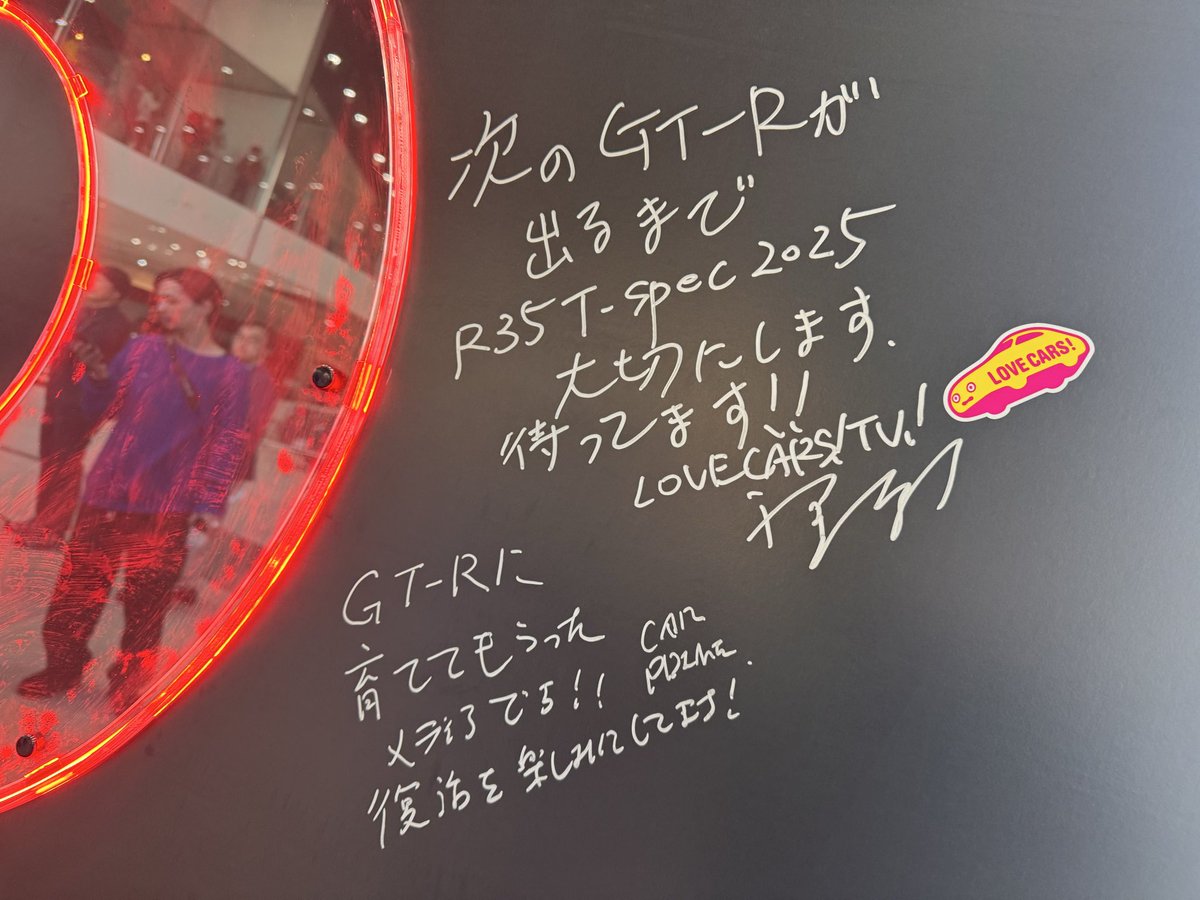 次のGT-Rが
出るまで
R35 T-spec 2025
大切にします.
待ってます!!
LOVECARS!TV!
LOVE CARS!
GT-Rに
育ててもらった
メディアです!!
CAR
復活を楽しみにしてます!